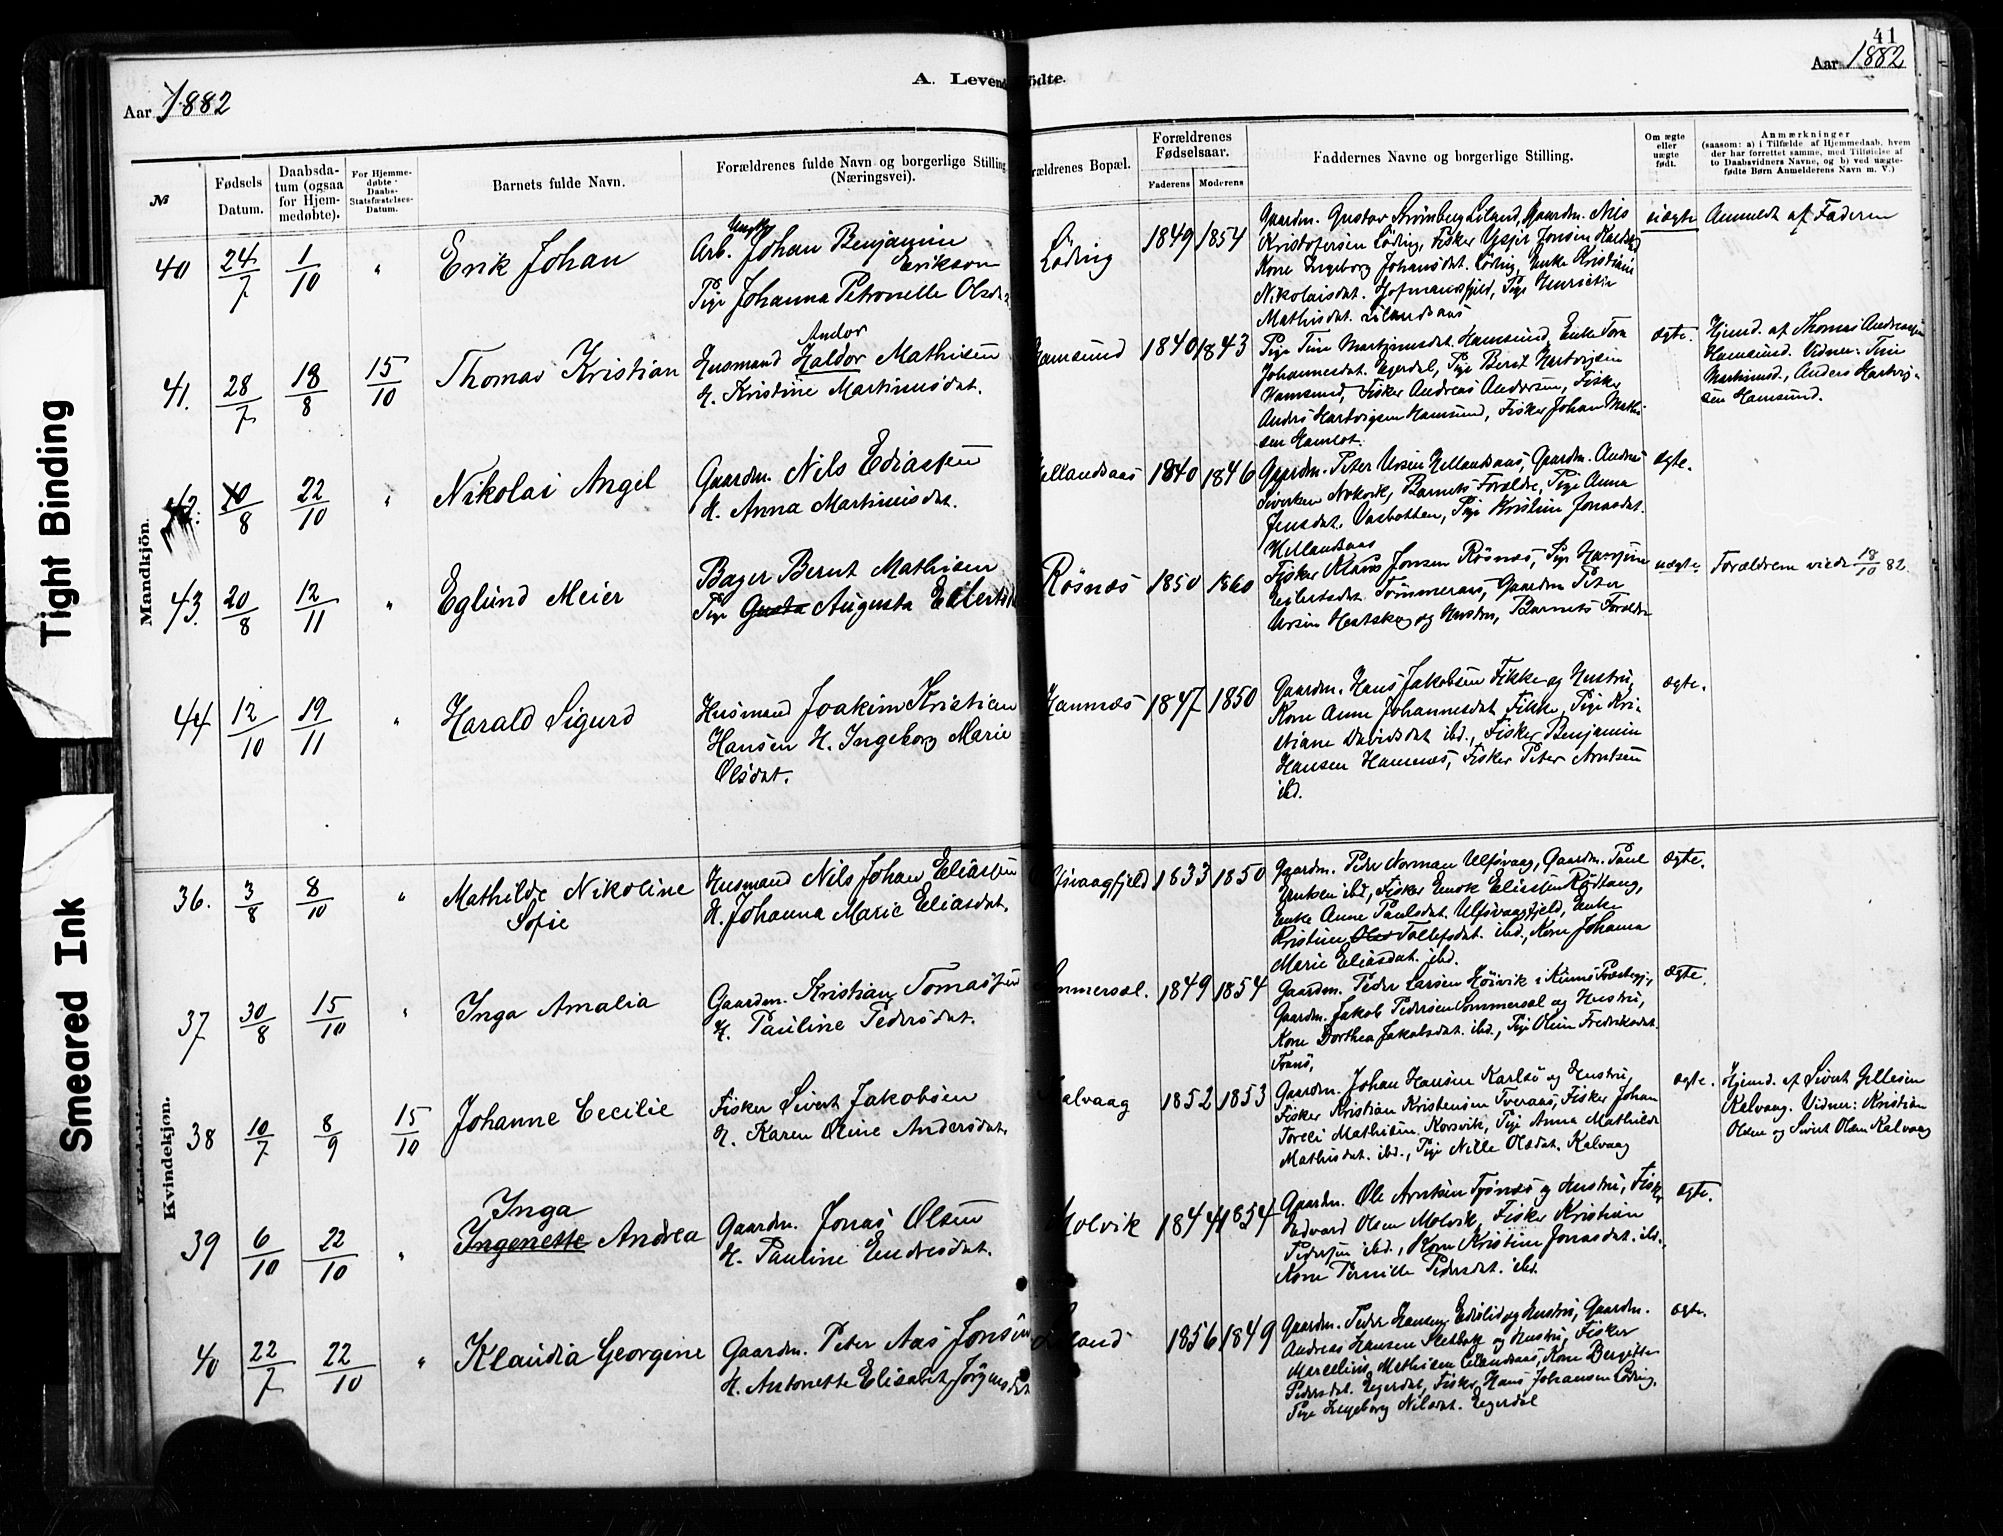 41
Aar 1882
A. Levendefødte.
Aar 1882
№
Fødsels Datum.
Daabsdatum (ogsaa for Hjemmedøbte).
For Hjemmedøbte Daabs-Statsfæstelses-Datum.
Barnets fulde Navn.
Forældrenes fulde Navn og borgerlige Stilling (Næringsvei).
Forældrenes Bopæl.
Forældrenes Fødselsaar.
Faderens Moderens
Faddernes Navne og borgerlige Stilling.
Om ægte eller uægte født.
Anmærkninger
(saasom: a) i Tilfælde af Hjemmedaab, hvem
der har forrettet samme, med Tilføielse af
to Daabsvidners Navne, og b) ved uægte-
fødte Børn Anmelderens Navn m. V.)
Mandkjön.
40 24/7 1/10 " Erik Johan
Ungk.
Arb. Johan Benjamin
Erikson
Pige Johanna Petronelle Olsd
Löding 1849 1854
Gaardm. Gustav Strömberg Liland, Gaardm. Nils
Kristofersen Löding, Fisker Jonsen
Kone Ingeborg Johansdat. Löding, Enke Kristiane
Nikolaisdat. Hofmansfjeld, Pige
Mathisdat. Lilandsaas
uægte Anmeldt af Faderen
41. 28/7 18/8 15/10 Thomas Kristian
Andor
Husmand Haldor Mathisen
H. Kristine Martinusdat.
Hamsund 1840 1843
Pige Martinusdat. Hamsund, Enke
Johannesdat. Egerdal, Pige Berit Hartvigsen
Hamsund, Fisker Andreas Andersen, Fisker
Anders Hartvigsen Hamsund, Fisker Johan Mathi-
sen
ægte. Hjemd. af Thomas
Hamsund. Vidner:
Martinusd., Anders Hartvig-
sen Hamsund.
42. 10/8 22/10 " Nikolai Angel
Gaardm. Nils Ediassen
H. Anna Martinusdat.
Hellandsaas 1840 1846
Gaardm. Peter Ursin Hellandsaas, Gaardm.
Siversen Barnets Forældre, Pige Anna
Jensdat. Vasbotten, Pige Kristine Jonasdat.
Hellandsaas
ægte.
43. 20/8 12/11 " Eglund Meier
Bager Bernt Mathisen
Pige Gusta Augusta
Rösnæs 1850 1860
Fisker Klaus Jonsen Rösnæs, Pige
Eilertsdat. Tömmeraas, Gaardm Peter
Ursin og Hustru, Barnets Forældre
uægte. Forældrene viede 18/10 82
44 12/10 19/11 " Harald Sigurd
Husmand Joakim Kristian
Hansen H. Ingeborg Marie
Olsdat.
Hamnæs 1847 1850
Gaardm. Hans Jakobsen Fikke og Hustru,
Kone Anne Johannesdat. Fikke, Pige Kri-
stiane Davidsdat ibd., Fisker Benjamin
Hansen Hamnæs, Fisker Peter Arntsen
ibd.
ægte.
Kvindekjon.
36. 3/8 8/10 " Mathilde Nikoline
Sofie
Husmand Nils Johan Eliassen
H. Johanna Marie Eliasdat.
Ulfsvaagfjeld 1833 1850
Gaardm. Peder Norman Ulfsvaag, Gaardm. Paul
ibd, Fisker Enok Eliassen Rödtang,
Enke Anne Paulsdat. Ulfsvaagfjeld, Enke
Kristine Tollefsdat. ibd., Kone Johanna
Marie Eliasdat. ibd.
ægte.
37 30/8 15/10 " Inga Amalia
Gaardm. Kristian Tomassen
H. Pauline Pedersdat.
Sommersæl. 1849 1854
Gaardm. Peder Larsen Höivik i
Gaardm. Jakob Pedersen Sommersæl og Hustru,
Kone Dorthea Jakobsdat. ibd., Pige Oline Fredriksdat.
Tranö,
ægte.
38 10/7 8/9 15/10 Johanne Cecilie
Fisker Sivert Jakobsen
H. Karen Oline Andersdat.
Kalvaag 1852 1853
Gaardm. Johan Hansen Karlsö og Hustru,
Fisker Kristian Kristensen Tveraas, Fisker Johan
Toreli Mathisen Korsvik, Pige Anna Mathilde
Mathisdat. ibd., Pige Nille Olsdat. Kalvaag
ægte. Hjemd. af Sivert
Kalvaag. Vidner: Kristian
Olsen og Sivert Olsen Kalvaag
39 6/10 22/10 " Inga
Ingenette Andrea
Gaardm. Jonas Olsen
H. Pauline Endresdat.
Molvik 1844 1854
Gaardm. Ole Arntsen Tysnæs og Hustru, Fisker
Edvard Olsen Molvik, Fisker Kristian
Pedersen ibd., Kone Kristine Jonasdat. ibd.,
Kone Pernille Pedersdat. ibd.
ægte.
40 22/7 22/10 " Klaudia Georgine
Gaardm. Peter Aas Jonsen
H. Antonette Elisabet Jörgensdat
Liland 1856 1849
Gaardm. Peder Hansen og Hustru, Gaardm.
Andreas Hansen og Hustru, Fisker
Marcelius Mathisen Lilandsaas, Kone Bergitte
Pedersdat. Egerdal, Fisker Hans Johansen Löding,
Pige Ingeborg Nilsdat. Egerdal
ægte.
Tight Binding
Smeared Ink